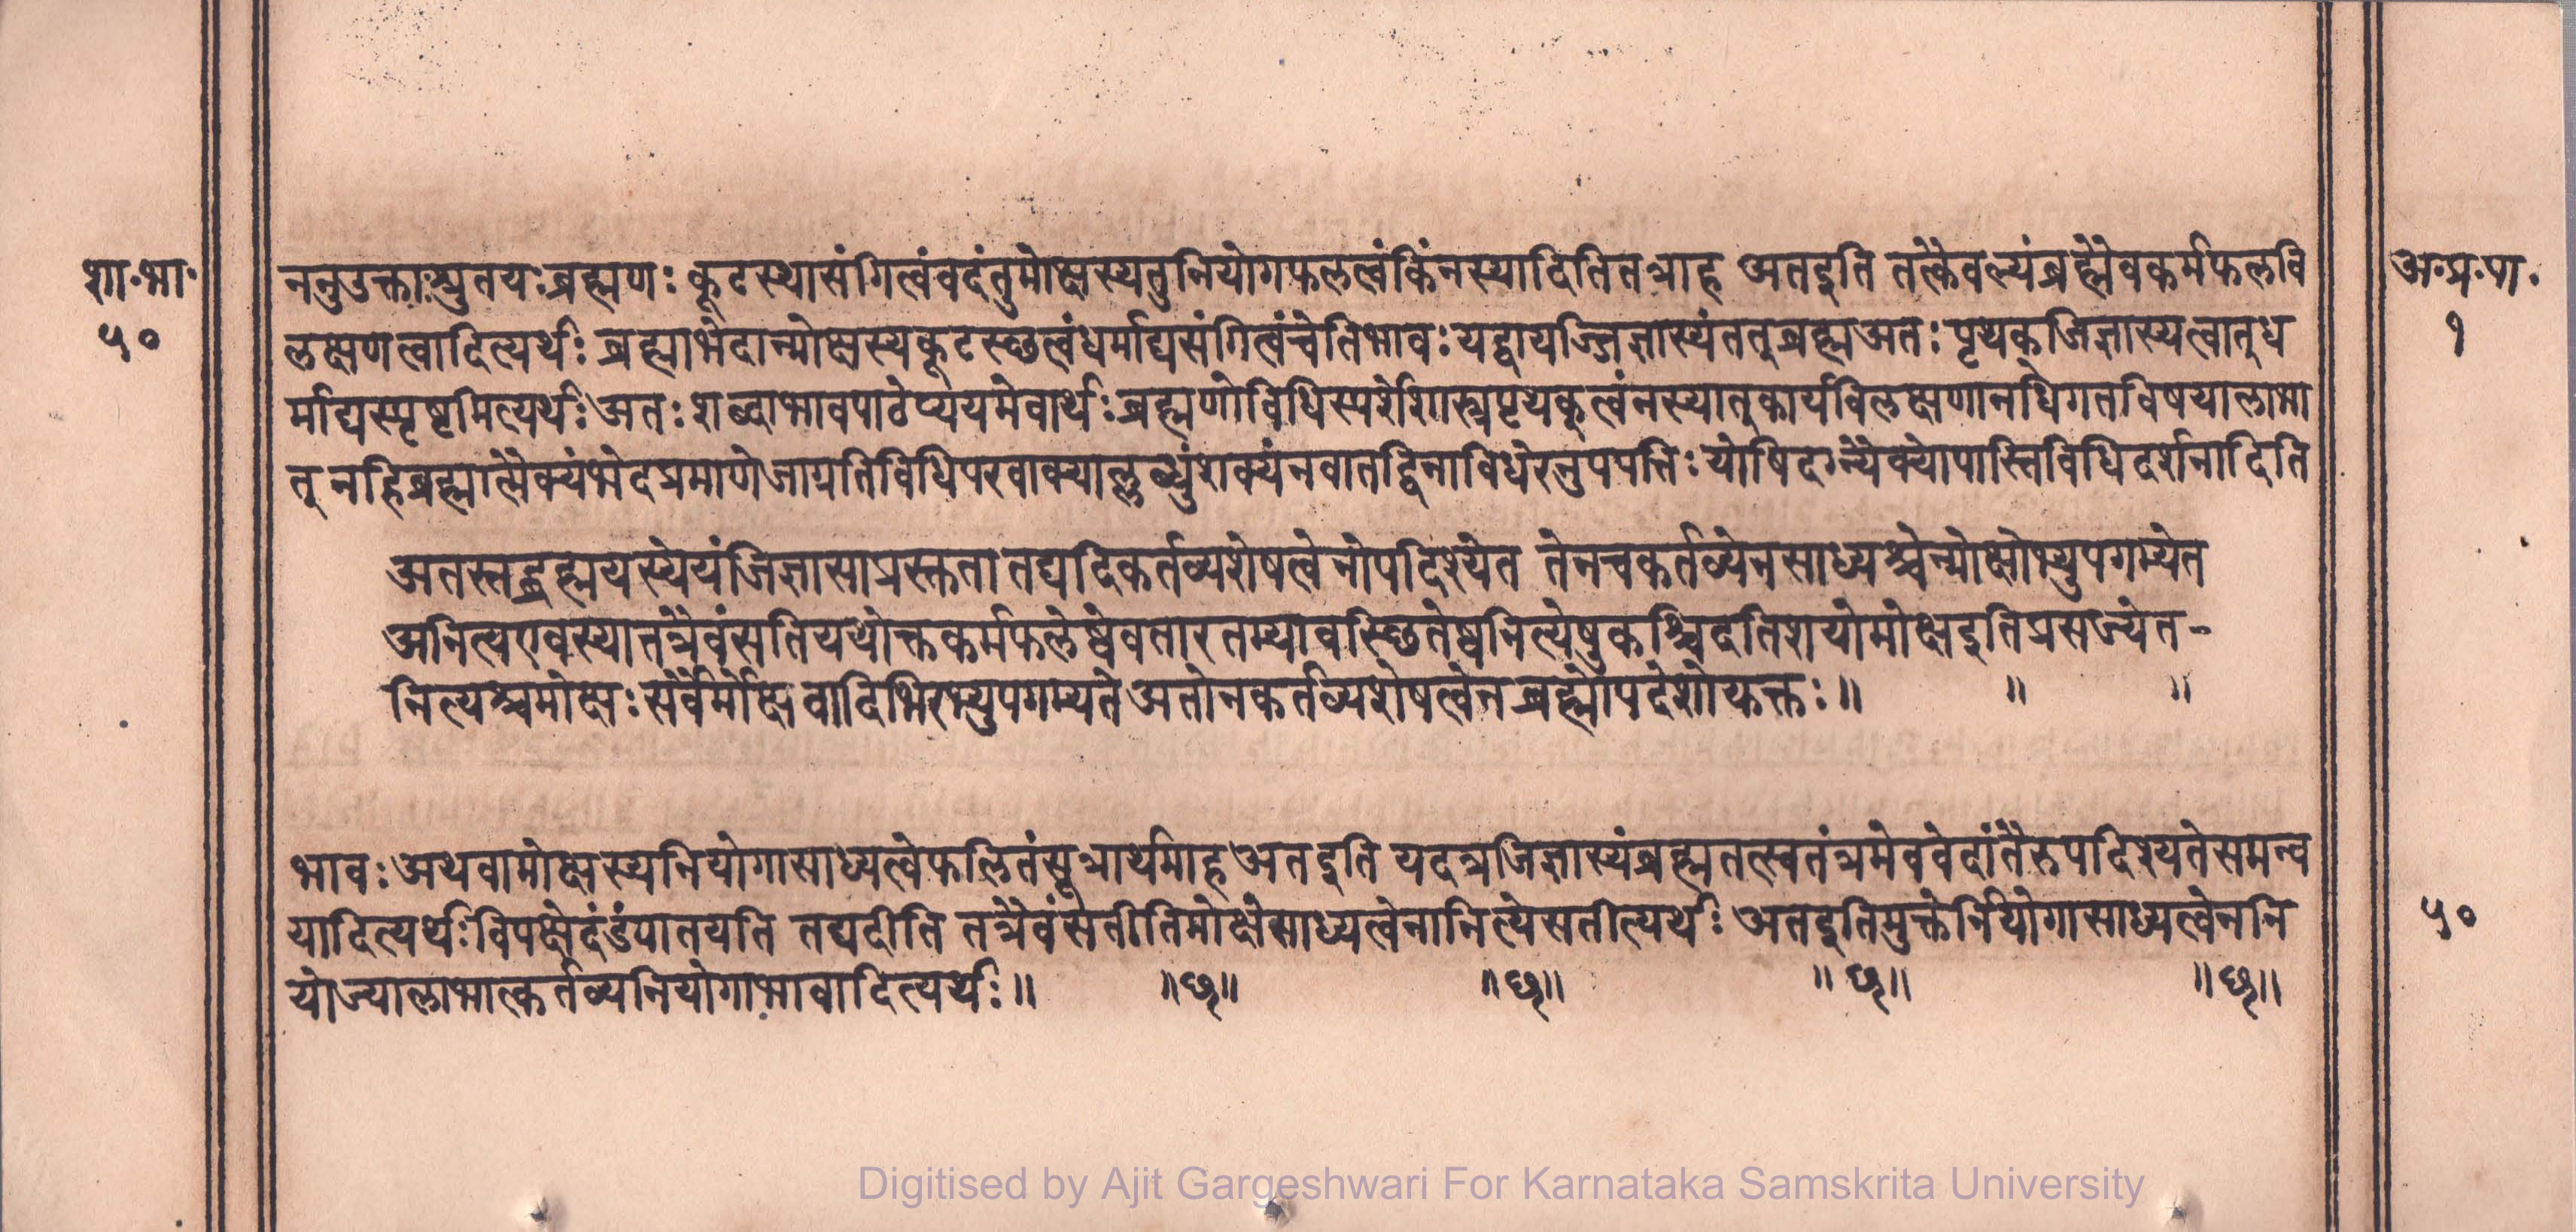 शा॰भा॰
५०
ननुउक्ताःश्रुतयःब्रह्मणः कूटस्थासंगित्वंवदंतुमोक्षस्यतुनियोगफलत्वंकिंनस्यादितितत्राह अतइति तत्कैवल्यंब्रह्मैवकर्मफलवि
लक्षणत्वादित्यर्थः ब्रह्माभेदान्मोक्षस्यकूटस्छत्वंधर्माद्यसंगित्वंचेतिभावः यद्वायज्जिज्ञास्यंतत्ब्रह्मअतः पृथक्जिज्ञास्यत्वात्ध
र्माद्यस्पृष्टमित्यर्थः अतः शब्दाभावपाठेप्ययमेवार्थः ब्रह्मणोविधिस्पर्शेशास्त्रपृथक्त्वंनस्यात्कार्यविलक्षणानधिगतविषयालाभा
त् नहिब्रह्मात्मैक्यंभेदप्रमाणेजाग्रतिविधिपरवाक्याल्लब्धुंशक्यंनवातद्विनाविधेरनुपपत्तिः योषिदग्न्यैक्योपास्तिविधिदर्शनादिति
अतस्तद्ब्रह्मयस्येयंजिज्ञासाप्रस्तुता तद्यदिकर्तव्यशेषत्वेनोपदिश्येत तेनचकर्तव्येनसाध्यश्चेन्मोक्षोभ्युपगम्येत
अनित्यएवस्यात्तत्रैवंसतियथोक्तकर्मफलेष्वेवतारतम्यावस्छितेष्वनित्येषुकश्चिदतिशयोमोक्षइतिप्रसज्येत-
नित्यश्चमोक्षः सर्वैर्मोक्षवादिभिरभ्युपगम्यते अतोनकर्तव्यशेषत्वेनब्रह्मोपदेशोयुक्तः॥ ॥ ॥
भावः अथवामोक्षस्यनियोगासाध्यत्वेफलितंसूत्रार्थमाह अतइति यदत्रजिज्ञास्यंब्रह्मतत्स्वतंत्रमेववेदांतैरुपदिश्यतेसमन्व
यादित्यर्थः विपक्षेदंडंपातयति तद्यदीति तत्रैवंसतीतिमोक्षेसाध्यत्वेनानित्येसतीत्यर्थः अतइतिमुक्तेर्नियोगासाध्यत्वेननि
योज्यालाभात्कर्तव्यनियोगाभावादित्यर्थः॥ ॥छ॥ ॥छ॥ ॥छ॥ ॥छ॥
अ॰प्र॰पा॰
१
५०
Digitised by Ajit Gargeshwari For Karnataka Samskrita University